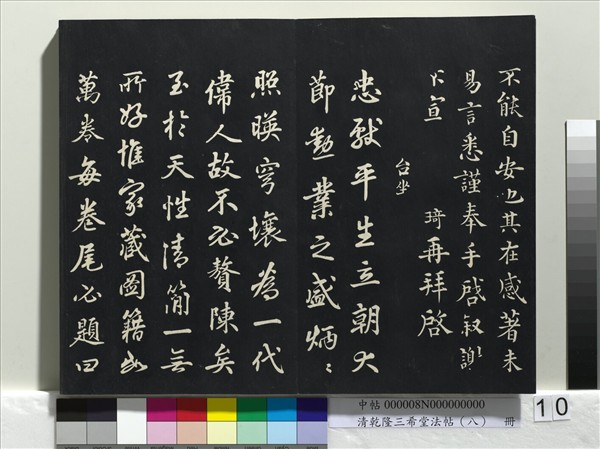 不能自安也其在感著未
易言悉謹奉手啓叙謝
不宣 琦再拜啓
台坐
忠獻平生立朝大
節勳業之盛炳〻
照暎穹壤為一代
偉人故不必贅陳矣
至於天性清簡一無
所好惟家藏圖籍
萬卷每卷尾必題曰
中帖 000008N000000000
清乾隆三希堂法帖（八） 冊
10